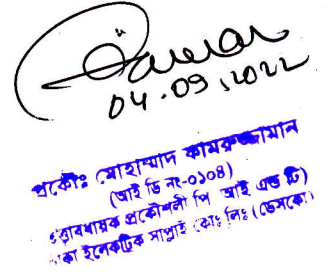 04.09.2022
প্রকৌঃ মোহাম্মাদ কামরুজ্জামান
(আই ডি নং-০১০৪)
প্রকৌশলী পি আই এন্ড টি)
ইলেকট্রিক সাপ্লাই কোং লিঃ (ডেসকো)